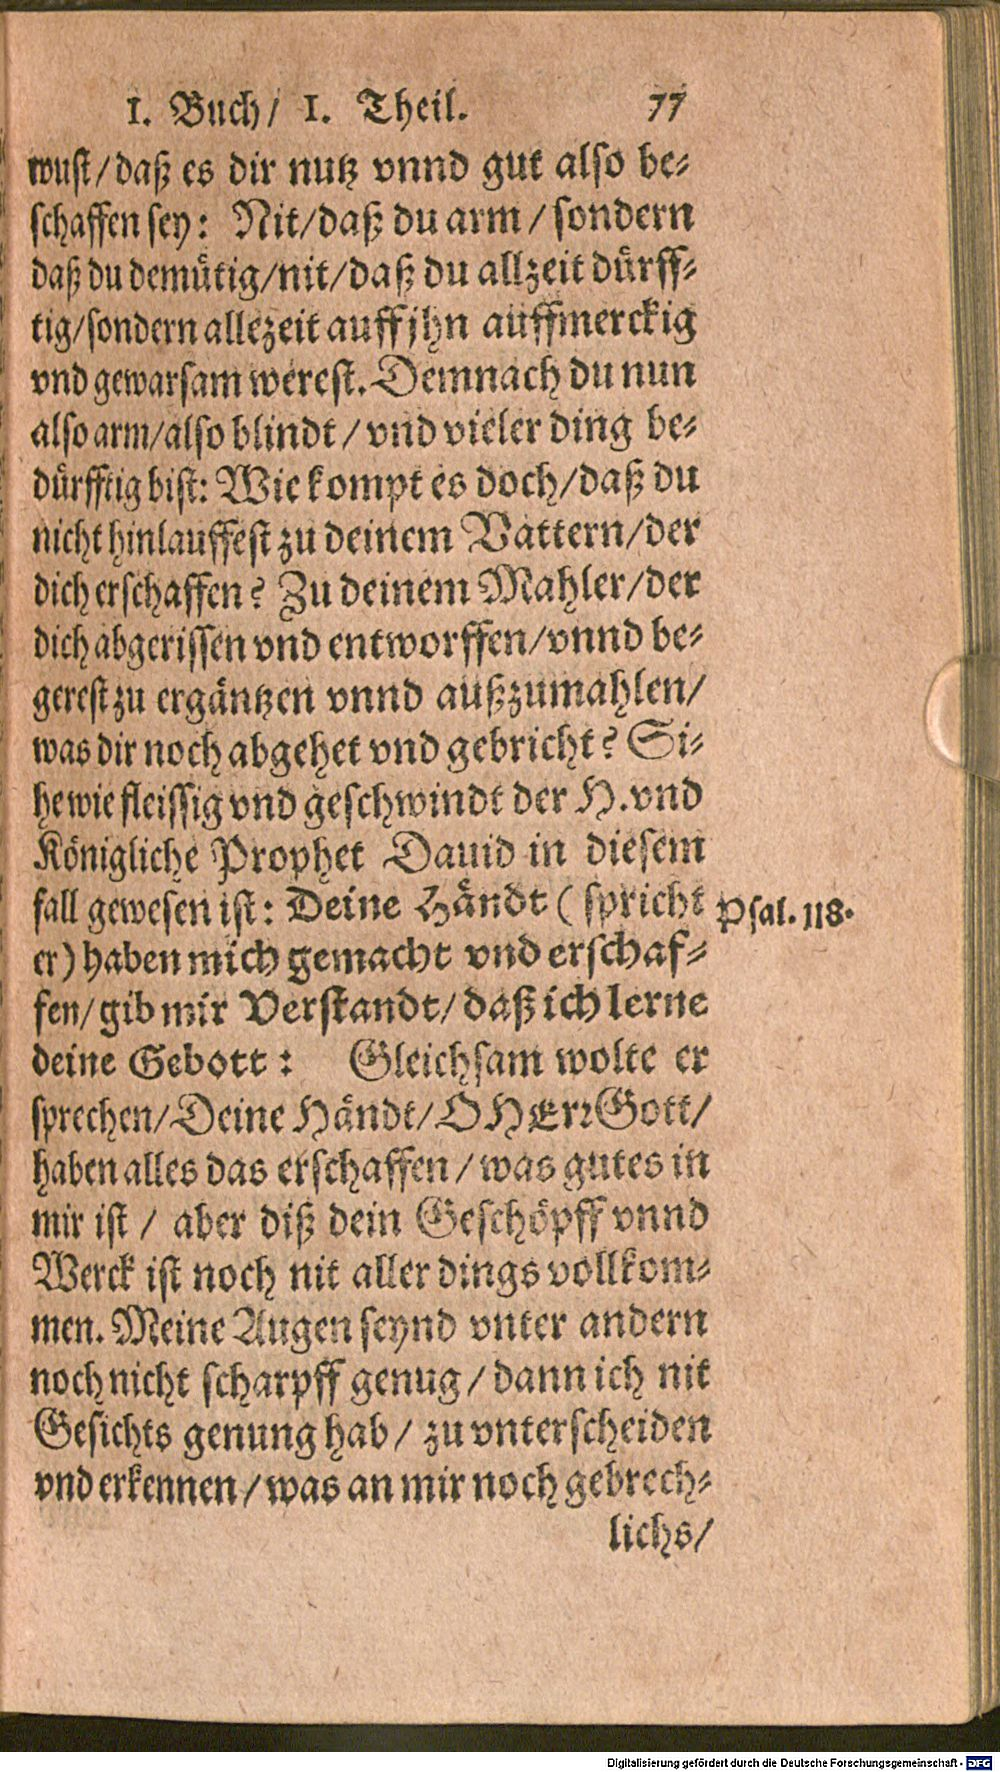 1. Buch/ 1. Theil. 77
wust/daß es dir nutz vnnd gut also be-
schaffen sey: Nit/daß du arm/sondern
daß du demütig/nit/daß du allzeit dürff-
tig/sondern allezeit auff jhn auffmerckig
vnd gewarsam werest. Demnach du nun
also arm/also blindt/vnd vieler ding be-
dürfftig bist: Wie kompt es doch/daß du
nicht hinlauffest zu deinem Vattern/der
dich erschaffen? Zu deinem Mahler/der
dich abgerissen vnd entworffen/vnnd be-
gerest zu ergäntzen vnnd außzumahlen/
was dir noch abgehet vnd gebricht? Si-
he wie fleissig vnd geschwindt der H. vnd
Königliche Prophet Dauid in diesem
fall gewesen ist: Deine Händt (spricht Psal. 118.
er) haben mich gemacht vnd erschaf-
fen/gib mir Verstandt/daß ich lerne
deine Gebott: Gleichsam wolte er
sprechen/Deine Händt/O HErr Gott/
haben alles das erschaffen/was gutes in
mir ist/ aber diß dein Geschöpff vnnd
Werck ist noch nit aller dings vollkom-
men. Meine Augen seynd vnter andern
noch nicht scharpff genug/dann ich nit
Gesichts genung hab/ zu vnterscheiden
vnd erkennen/was an mir noch gebrech-
lichs/
Digitalisierung gefördert durch die Deutsche Forschungsgemeinschaft - DFG